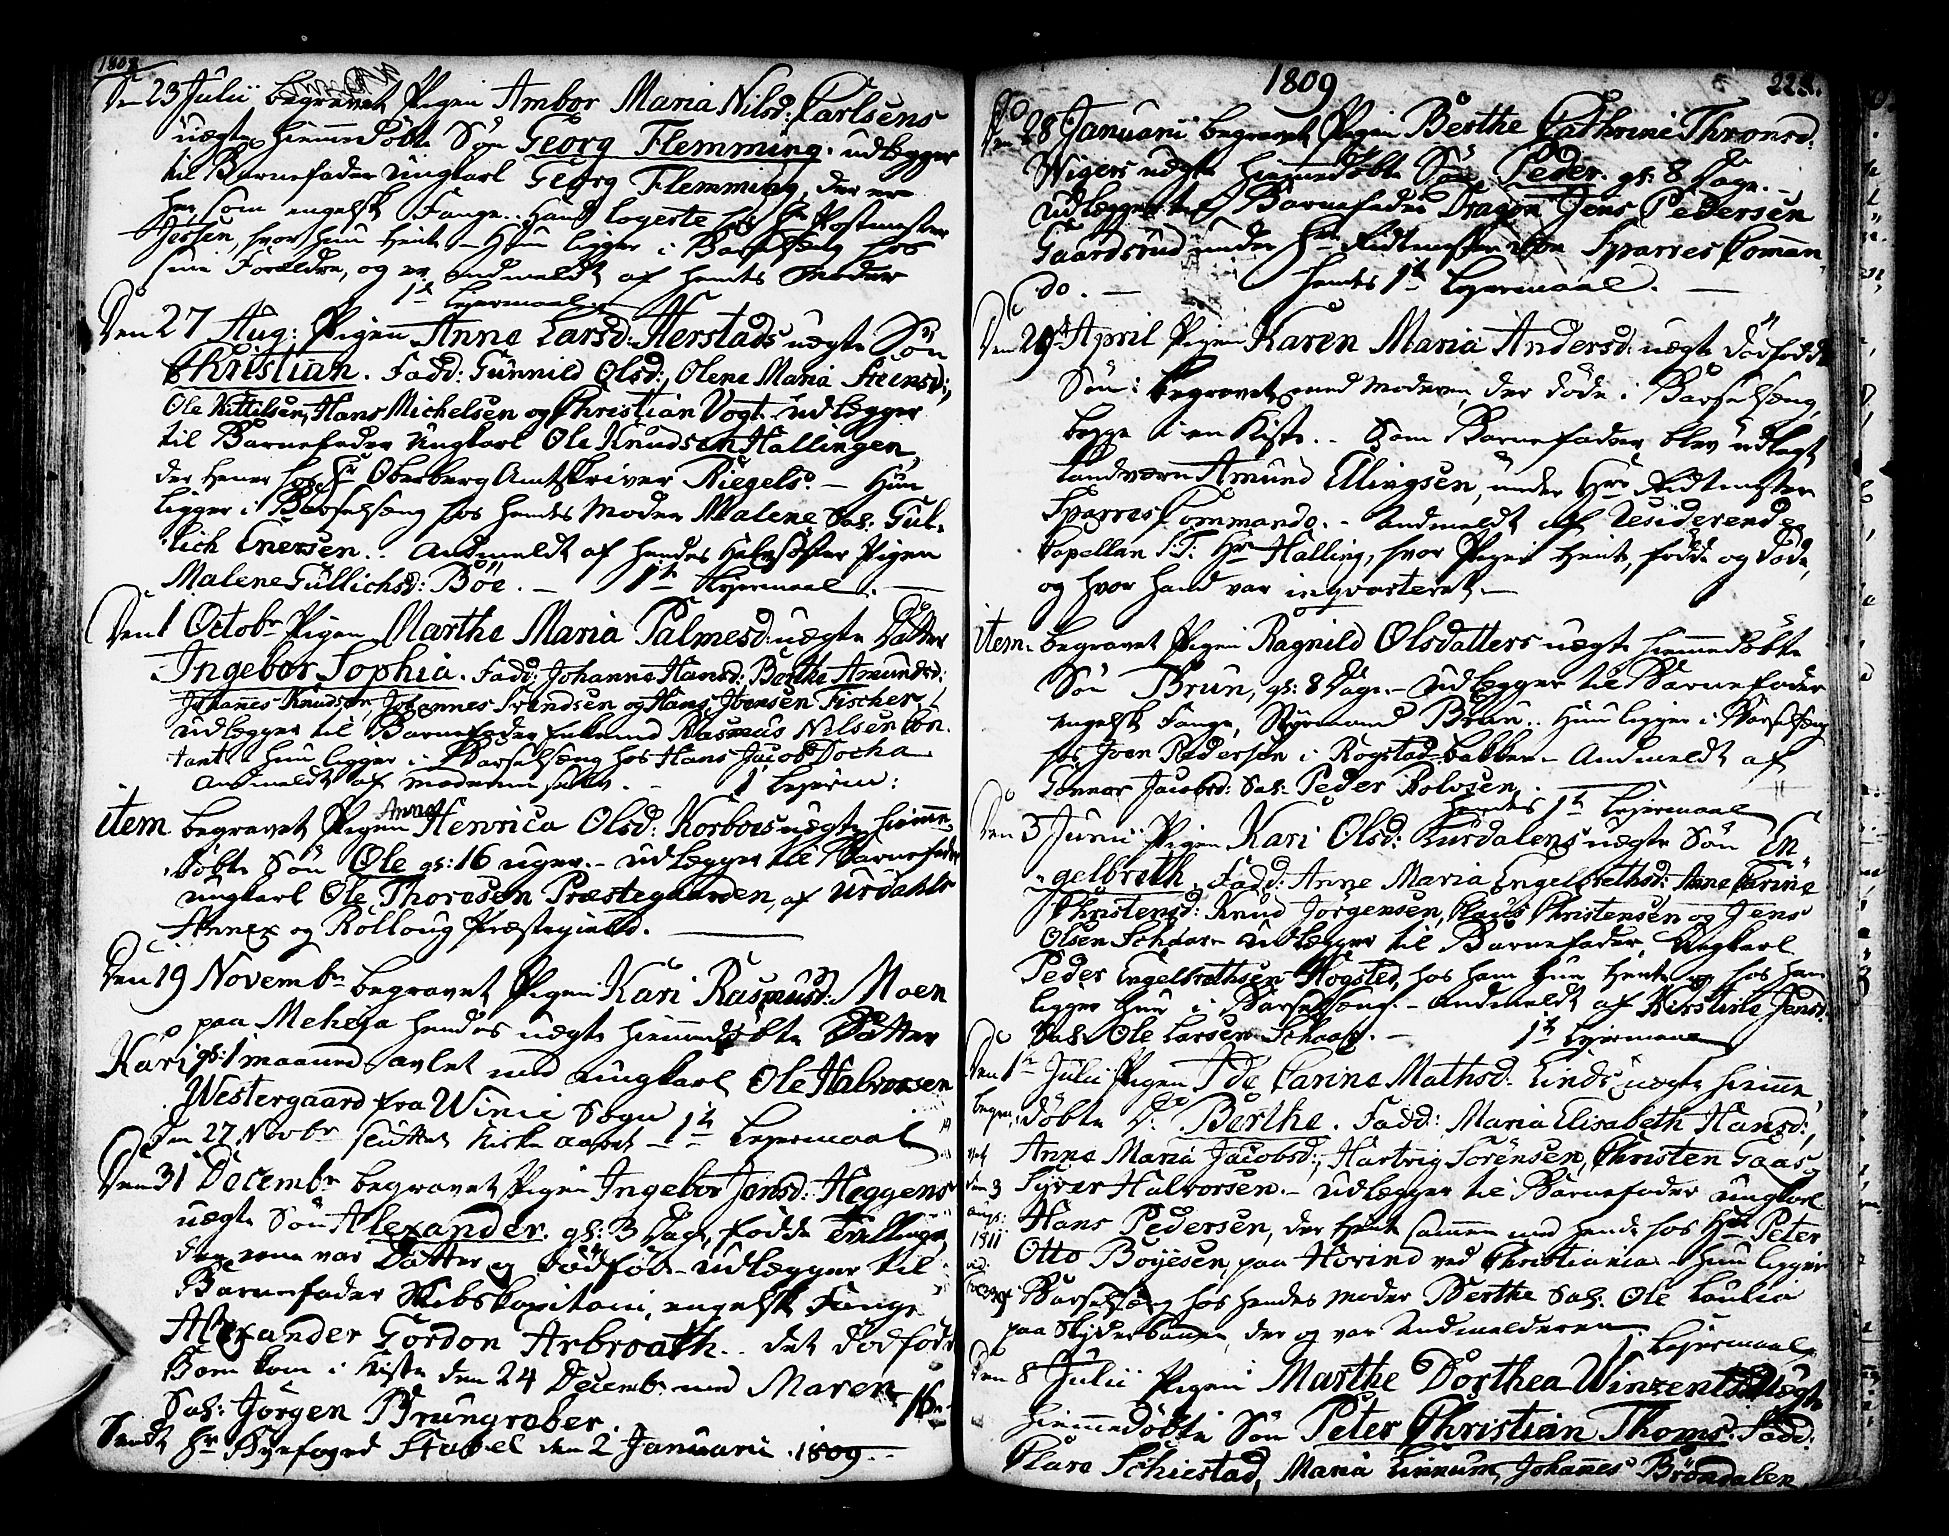 1808
Den 23 Julii begravet Pigen Ambor Maria Nilsd: Carlsens
uægte hiemmedøbte Søn Georg Flemming. udlægger
til Barnefader Ungkarl Georg Flemming, der er
her som engelsk Fange. Hand logerte hos Hr Postmester
Jessen, hvor hun tiente - Hun ligger i Barselseng hos
sine Forældre, og er andmeldt af hendes Moder
1te Lejermaal
Den 27 Aug: Pigen Anne Larsd: Herstads uægte Søn
Christian. Fadd: Gunnild Olsd:, Olene Maria Steensd:,
Ole Kittilsen, Hans Michelsen og Christian Vogt. Udlægger
til Barnefader Ungkarl Ole Knudsen Hallingen,
der tiener hos Hr Oberberg Amtskriver Riegels. - Hun
ligger i Barselseng hos hendes Moder Malene Sal: Gul-
lich Enersen. Andmeldt af hendes Halvsøster Pigen
Malene Gullichsd: Böe. - 1te Lejermaal. -
Den 1 Octobr Pigen Marthe Maria Palmesd: uægte Datter
Ingebor Sophia. Fadd: Johanne Hansd: Berthe Amundsd:
Johannes Knudsen Johannes Svendsen og Hans Joensen Fischer,
udlægger til Barnefader Enkemand Rasmus Nilsen Con-
tant. Hun ligger i Barselseng hos Hans Jacob Docka
Andmeldt af Moderen selv. - 1 Lejerm:
item begravet Pigen Anne Henrica Olsd: Korboes uægte hiemme-
døbte Søn Ole gl: 16 uger. - Udlægger til Barnefader
ungkarl Ole Thoresen Præstegaarden, af Urdahls
Annex og Rolloug Præstegield.
Den 19 Novembr begravet Pigen Kari Rasmusd: Moen
paa Meheja hendes uægte hiemmedøbte Datter
Kari gl: 1 maaned avlet med ungkarl Ole Halvorsen
Westergaard fra Winie Sogn 1te Lejermaal
Den 27 Novbr sluttet Kirke aaret
Den 31 Decembr begravet Pigen Ingebor Jensd: Heggens
uægte Søn Alexander. gl: 3 Dage, fødde Tvillinge,
den eene var Datter og dødfød - Udlægger til
Barnefader Skibskapitain, engelsk Fange
Alexander Gordon Arbroath. det dødfødte
Barn kom i Kiste den 24 Decemb: med Maren
Sal: Jørgen Brungraber.
Sendt Hr Byefoged Stabel den 2 Januarii 1809.
1809
Den 28 Januarii begravet Pigen Berthe Cathrine Thronsd:
Wigers uægte hiemmedøbte Søn Peder. gl: 8 Dage. -
Udlægger til Barnefader Dragon Jens Pedersen
Gaardsrud under Hr Ridtmester von Sparres Comman-
do. - hendes 1te Lejermaal. -
Den 29 April Pigen Karen Maria Andersd: uægte dødfødte
Søn: begravet med Moderen, der døde i Barselseng,
begge i en Kiste. - Som Barnefader blev udlagt
Landværn Amund Ellingsen, under Hr Ridtmester
Sparres Commando. - Andmeldt af residerende
Capellan S.T. Hr Halling, hvor Pigen tiente, fødde og døde,
og hvor hand var inqvarteret. -
item begravet Pigen Ragnild Olsdatters uægte hiemmedøbte
Søn Brun, gl: 8 Dage. - Udlægger til Barnefader
engelsk Fange, Styrmand Brun. Hun ligger i Barselseng
hos Joen Pedersen i Rogstad-bakken. Andmeldt af
Gunnor Jacobsd: Sal: Peder Rolvsen.
hendes 1te Lejermaal
Den 3 Junii Pigen Kari Olsd: Lurdalens uægte Søn En-
gelbreth. Fadd: Anne Maria Engelbrethsd: Anne Carine
Christensd: Knud Jørgensen, Claus Christensen og Jens
Olsen Schaar - Udlægger til Barnefader Ungkarl
Peder Engelbrethsen Hogsted, hos ham hun tiente og hos ham
ligger hun i Barselseng. - Andmeldt af Kirstine Jensd:
Sal: Ole Larsen Schaar. - 1te Lejermaal
Den 1te Julii Pigen Ide Carine Mathsd. Linds uægte hiemme
døbte Dr Berthe. Fadd: Maria Elisabeth Hansd:,
Anne Maria Jacobsd:, Hartvig Sørensen, Christen Gaas,
Syver Halvorsen. - Udlægger til Barnefader ungkarl
Hans Pedersen, der tiente sammen med hende hos Hr Peter
Otto Boyesen, paa Hovind ved Christiania. Hun ligger
i Barselseng hos hendes Moder Berthe Sal: Ole Laulia
paa Skyderbanen, der og var Andmelderen
1 Lejermaal,
begra-
vet
den 3
aug:
1811
Den 8 Julii Pigen Marthe Dorthea Winzents uægte
hiemmedøbte Søn Peter Christian Thoms. Fadd:
Clare Schiestad, Maria Linnum, Johannes Brøndalen